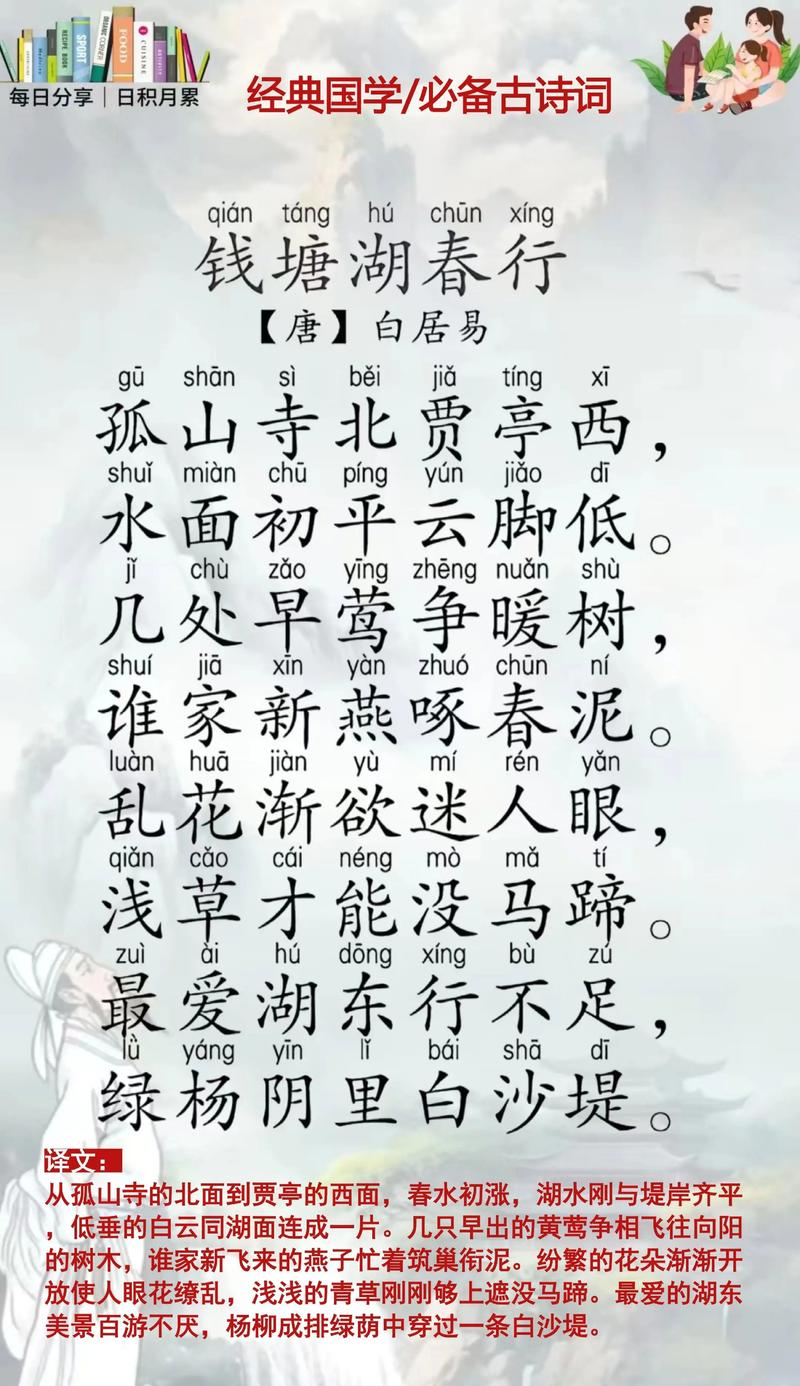 SPORT
RECIPE BOOK
ORGANIC CORNER
FOOD
CUISINE
每日分享｜日积月累
经典国学/必备古诗词
qián táng hú chūn xíng
钱塘湖春行
【唐】白居易
gū shān sì běi jiǎ tíng xī
孤山寺北贾亭西，
shuǐ miàn chū píng yún jiǎo dī
水面初平云脚低。
jǐ chù zǎo yīng zhēng nuǎn shù
几处早莺争暖树，
shuí jiā xīn yàn zhuó chūn ní
谁家新燕啄春泥。
luàn huā jiàn yù mí rén yǎn
乱花渐欲迷人眼，
qiǎn cǎo cái néng mò mǎ tí
浅草才能没马蹄。
zuì ài hú dōng xíng bù zú
最爱湖东行不足，
lǜ yáng yīn lǐ bái shā dī
绿杨阴里白沙堤。
译文：
从孤山寺的北面到贾亭的西面，春水初涨，湖水刚与堤岸齐平
，低垂的白云同湖面连成一片。几只早出的黄莺争相飞往向阳
的树木，谁家新飞来的燕子忙着筑巢衔泥。纷繁的花朵渐渐开
放使人眼花缭乱，浅浅的青草刚刚够上遮没马蹄。最爱的湖东
美景百游不厌，杨柳成排绿荫中穿过一条白沙堤。